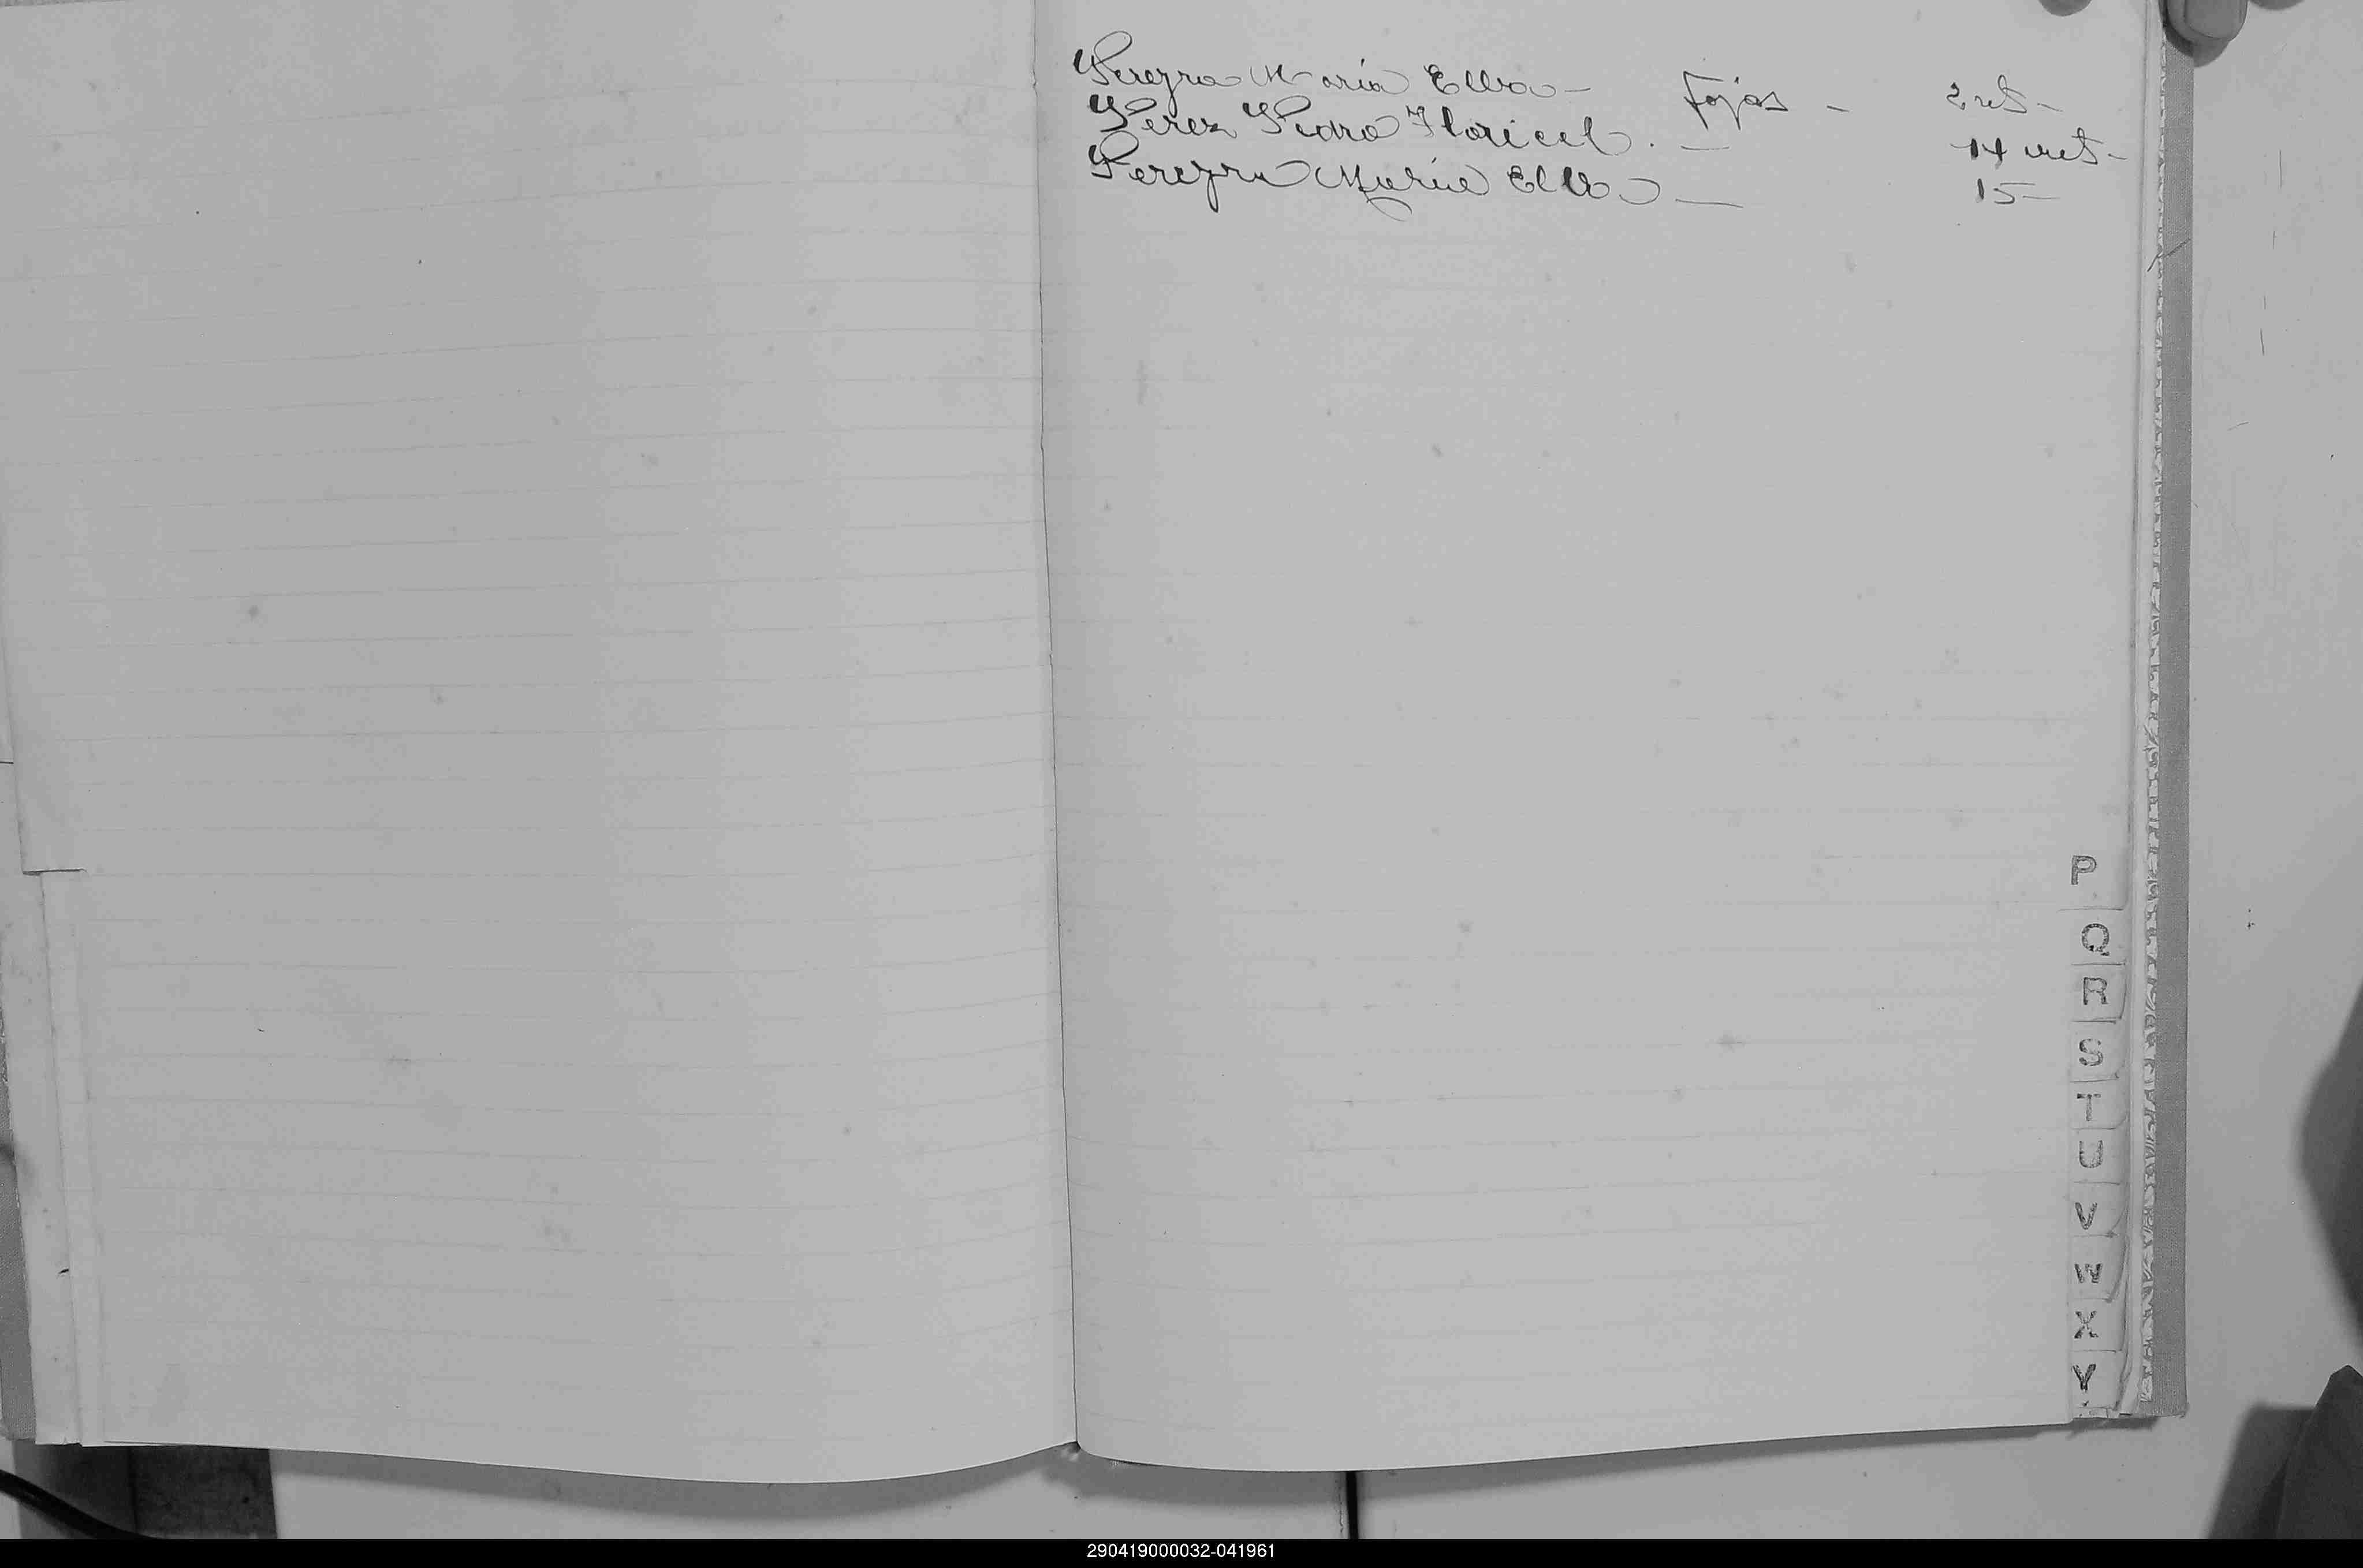 Pereyra María Elba - Fojas - 2 vet -
Perez Pedro Floricel . - 14 vet -
Pereyra María Elba - 15 -
P
Q
R
S
T
U
V
W
X
Y
290419000032-041961